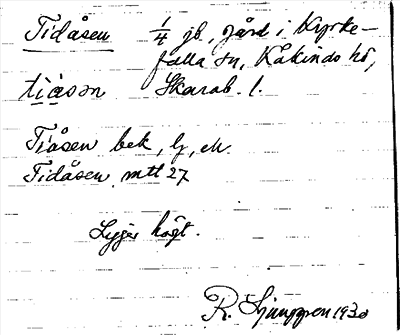 Tidåsen 1/4 jb, gård i Kyrke-
falla sn, Kåkinds hd,
tiåsən Skarab. l.
Tiåsen bek, lj, ek.
Tidåsen mtl 27
Ligger högt.
R. Ljunggren 1930